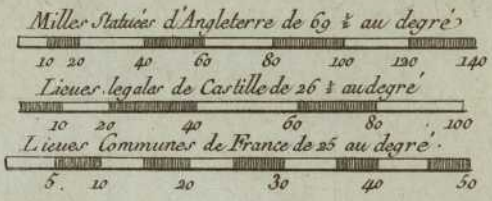 Milles Statuées d'Angleterre de 69 ½ au degré
10 20 40 60 80 100 120 140
Lieues legales de Castille de 26 ½ au degré
10 20 40 60 80 100
Lieues Communes de France de 25 au degré.
5. 10 20 30 40 50